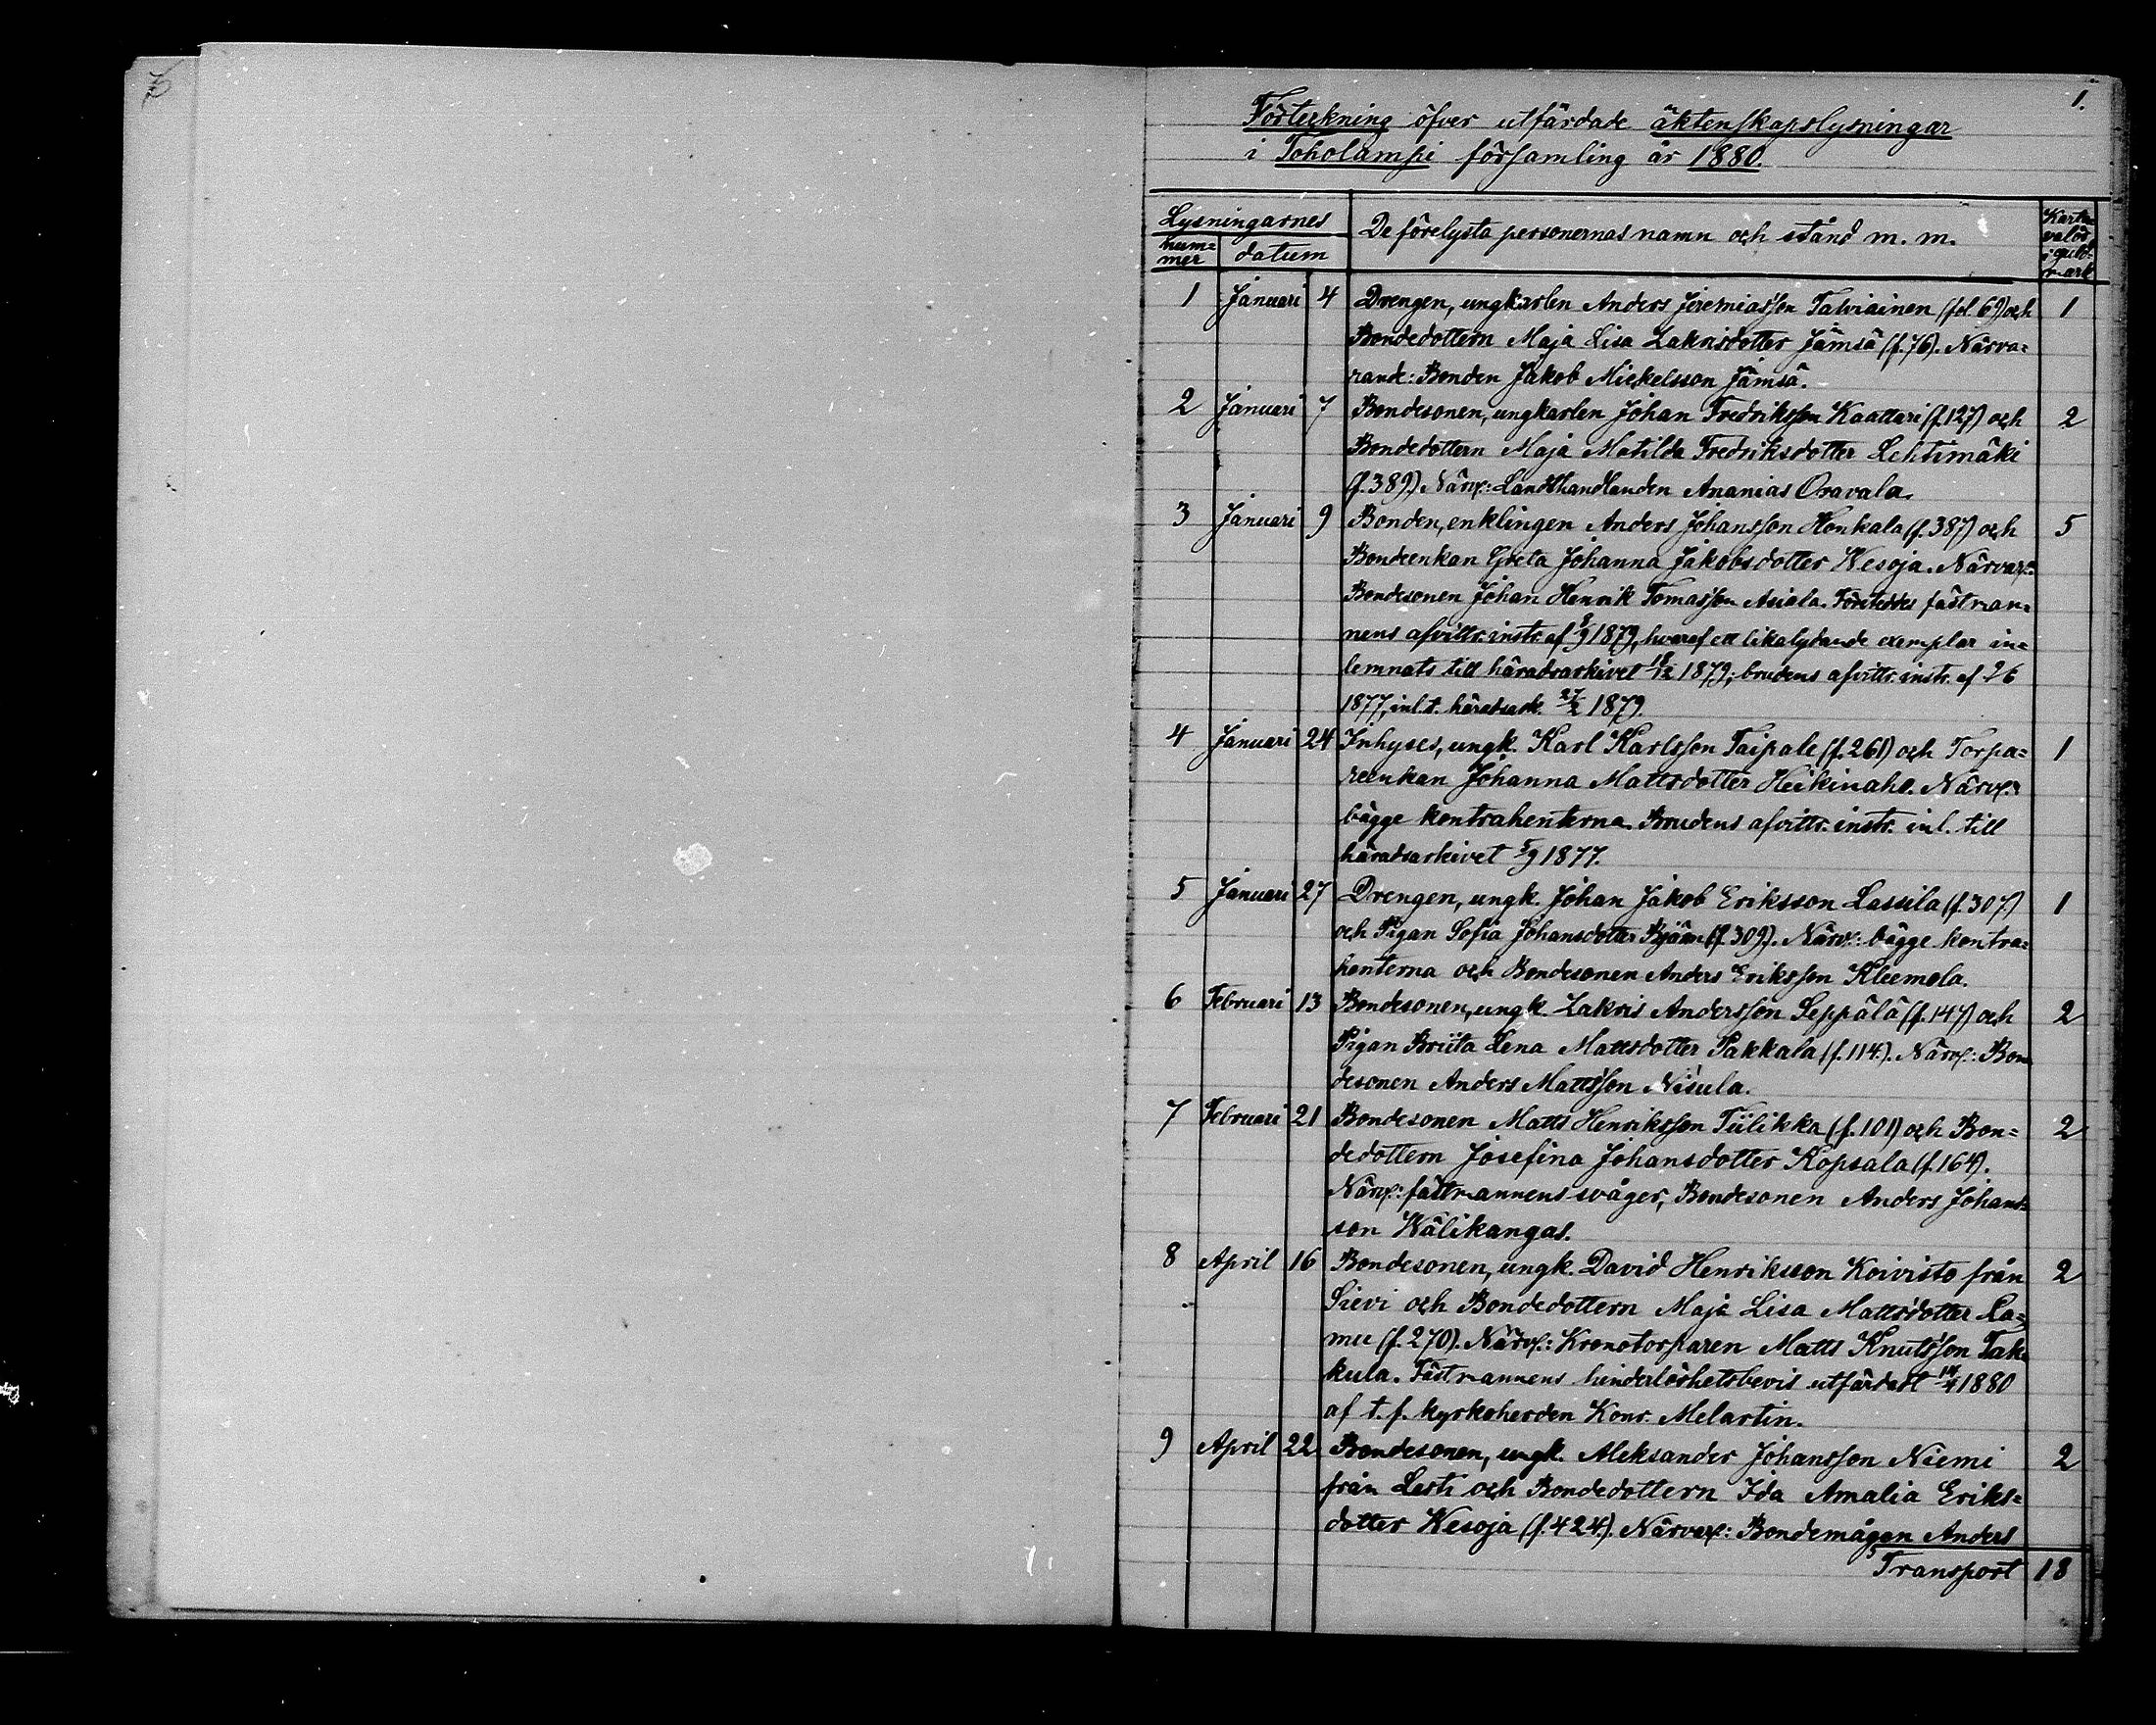 1.
Förteckning öfver utfärdade äktenskapslysningar
i Toholampi församling år 1880.
Lysningarnes
num=
mer
datum
De förelysta personernas namn och stånd m. m.
Karta
valör
i guld=
mark
1 Januari 4 Drengen, ungkarlen Anders Jeremiasson Talviainen (fol. 69) och 1
Bondedottern Maja Lisa Zakrisdotter Jämsä (f. 76). Närva=
rande: Bonden Jakob Mickelsson Jämsä.
2 Januari 7 Bondesonen, ungkarlen Johan Fredriksson Kaattari (f. 127) och 2
Bondedottern Maja Matilda Fredriksdotter Lehtimäki
(f. 389.) Närv.: Landthandlanden Ananias Oravala.
3 Januari 9 Bonden, enklingen Anders Johansson Honkala (f. 387) och 5
Bondeenkan Greta Johanna Jakobsdotter Wesoja. Närvar.:
Bondesonen Johan Henrik Tomasson Asiala. Företeddes fästman=
nens afvittr. instr. af 5/9 1879, hvaraf ett likalydande exemplar in=
lemnats till häradsarkivet 18/12 1879; brudens afvittr. instr. af 26
1877, inl. t. häradsark. 27/2 1879.
4 Januari 24 Inhyses, ungk. Karl Karlsson Taipale (f. 261) och Torpa= 1
reenkan Johanna Mattsdotter Heikinaho. Närv.:
bägge kontrahenterna. Brudens afvittr. instr. inl. till
häradsarkivet 5/9 1877.
5 Januari 27 Drengen, ungk. Johan Jakob Eriksson Lassila (f. 307.) 1
och Pigan Sofia Johansdotter Björn (f. 309). Närv.: bägge kontra=
henterna och Bondesonen Anders Eriksson Kleemola.
6 Februari 13 Bondesonen, ungk. Zakris Andersson Seppälä (f. 147) och 2
Pigan Briita Lena Mattsdotter Pakkala (f. 114.). Närv.: Bon
desonen Anders Mattsson Nisula.
7 Februari 21 Bondesonen Matts Henriksson Tiilikka (f. 101) och Bon= 2
dedottern Josefina Johansdotter Kopsala (f. 164).
Närv.: fästmannens svåger, Bondesonen Anders Johans=
son Wälikangas.
8 April 16 Bondesonen, ungk. David Henriksson Koivisto från 2
Sievi och Bondedottern Maja Lisa Mattsdotter La=
mu (f. 270). Närv.: Kronotorparen Matts Knutsson Tak
kula. Fästmannens hinderlöshetsbevis utfärdadt 14/4 1880
af t. f. kyrkoherden Konr. Melartin.
9 April 22 Bondesonen, ungk. Aleksander Johansson Niemi 2
från Lesti och Bondedottern Ida Amalia Eriks=
dotter Wesoja (f. 424.). Närvar.: Bondemågen Anders
Transport 18